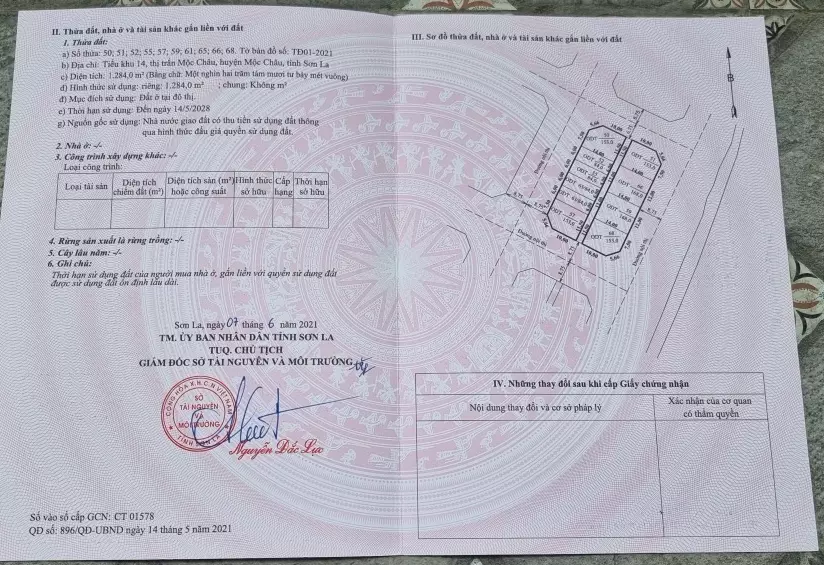 II. Thửa đất, nhà ở và tài sản khác gắn liền với đất
1. Thửa đất:
a) Số thửa: 50; 51; 52; 55; 57; 59; 61; 65; 66; 68. Tờ bản đồ số: TĐ01-2021
b) Địa chỉ: Tiểu khu 14, thị trấn Mộc Châu, huyện Mộc Châu, tỉnh Sơn La
c) Diện tích: 1.284,0 m² (Bằng chữ: Một nghìn hai trăm tám mươi tư bảy mét vuông)
d) Hình thức sử dụng: riêng: 1.284,0 m² ; chung: Không m²
đ) Mục đích sử dụng: Đất ở tại đô thị
e) Thời hạn sử dụng: Đến ngày 14/5/2028
g) Nguồn gốc sử dụng: Nhà nước giao đất có thu tiền sử dụng đất thông
qua hình thức đấu giá quyền sử dụng đất.
2. Nhà ở: -/-
3. Công trình xây dựng khác: -/-
Loại công trình:
Loại tài sản
Diện tích chiếm đất (m²)
Diện tích sàn (m²) hoặc công suất
Hình thức sở hữu
Cấp hạng
Thời hạn sở hữu
4. Rừng sản xuất là rừng trồng: -/-
5. Cây lâu năm: -/-
6. Ghi chú:
Thời hạn sử dụng đất của người mua nhà ở, gắn liền với quyền sử dụng đất
được sử dụng đất ổn định lâu dài.
Sơn La, ngày 07 tháng 6 năm 2021
TM. ỦY BAN NHÂN DÂN TỈNH SƠN LA
TUQ. CHỦ TỊCH
GIÁM ĐỐC SỞ TÀI NGUYÊN VÀ MÔI TRƯỜNG
CỘNG HÒA X.H.C.N VIỆT NAM
SỞ
TÀI NGUYÊN
VÀ
MÔI TRƯỜNG
TỈNH SƠN LA
Nguyễn Đắc Lực
Số vào sổ cấp GCN: CT 01578
QĐ số: 896/QĐ-UBND ngày 14 tháng 5 năm 2021
III. Sơ đồ thửa đất, nhà ở và tài sản khác gắn liền với đất
B
Đường nội thị
Đường nội thị
Đường nội thị
IV. Những thay đổi sau khi cấp Giấy chứng nhận
Nội dung thay đổi và cơ sở pháp lý
Xác nhận của cơ quan
có thẩm quyền